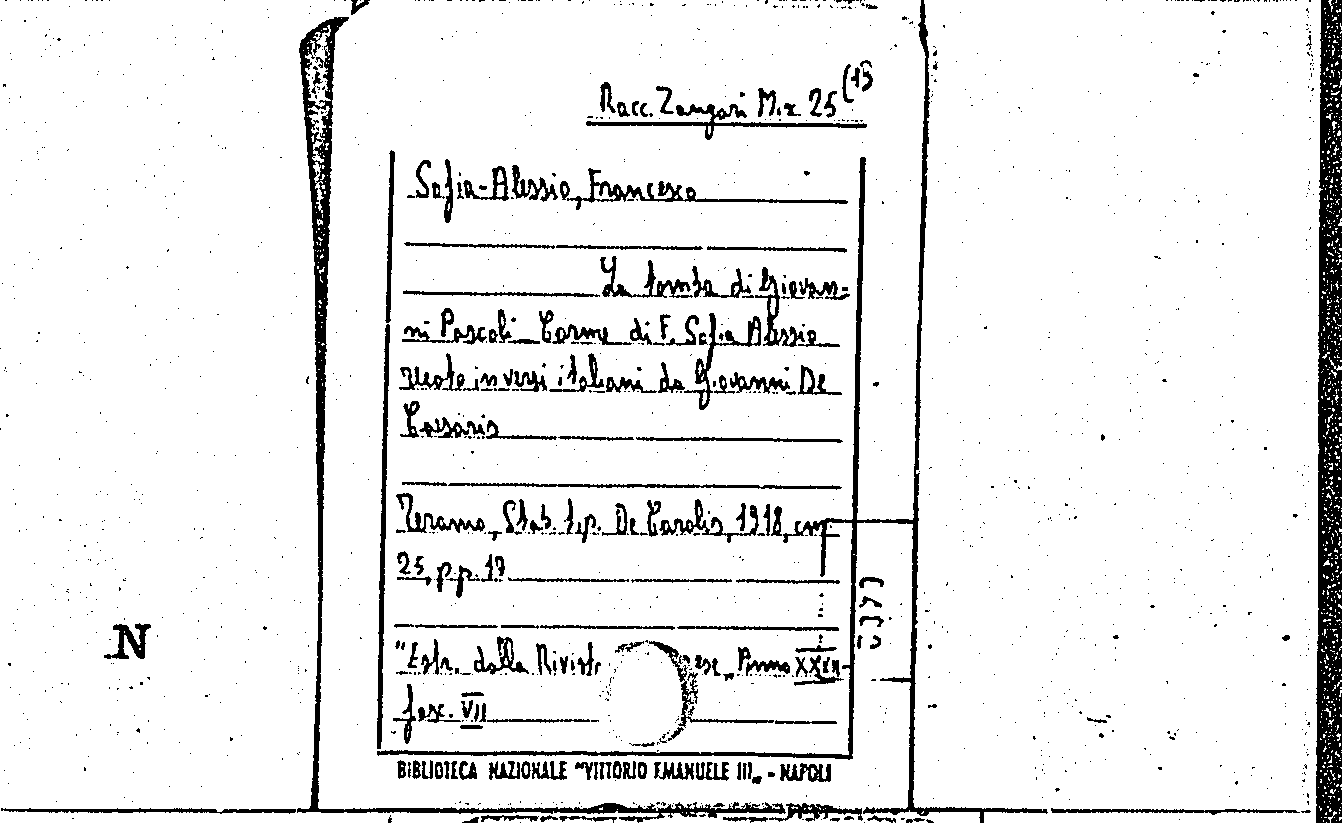 Racc. Zangari M.x 25 (15
Sofia-Alessio, Francesco
La tomba di Giovan=
ni Pascoli_ Carme di F. Sofia Alessio
recato in versi italiani da Giovanni De
Caesaris
Teramo, Stab. tip. De Carolis, 1918, cm
25, pp. 17
"Estr. dalla Rivist ese„ Anno XXXII-
fasc. VII
BIBLIOTECA NAZIONALE "VITTORIO EMANUELE III„ - NAPOLI
N